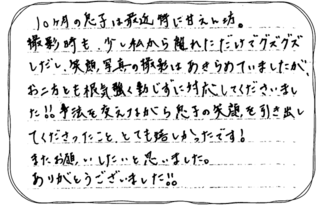 10ヶ月の息子は最近特に甘えん坊。
撮影時も、少し私から離れただけでグズグズ
しだし、笑顔写真の撮影はあきらめていましたが、
お二方とも根気強く動じずに対応してくださいまし
た!!手法を変えながら息子の笑顔を引き出し
てくださったこと、とても嬉しかったです!
またお願いしたいと思いました。
ありがとうございました!!